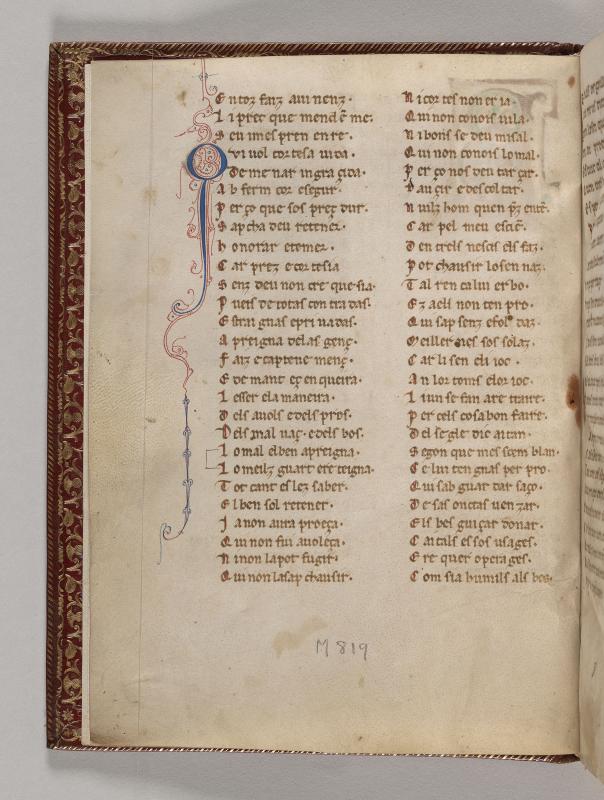 En toz faiz auinenz.
Li prec que mend ē me.
Seu imes pren en re.
Qvi uol cortesa uida.
De menar ingra çida.
Ab ferm cor e segur.
Per ço que sos preç dur.
Sapcha deu retener.
honorar e temer.
Car prez e cortesia
Senz deu non cre que sia.
Pueis de totas con tradas.
Estraignas e priuadas.
Apreigna de las genç.
Faiz e captene menç.
E demant eç enqueira.
Lesser e la maneira.
Dels auols e dels pros.
Dels mal uaç. e dels bos.
Lo mal el ben apreigna.
Lo meilz guart e reteigna.
Tot cant es lez saber.
El ben sol retener.
Ja non aura proeça.
Qui non fui auoleça.
Ni non la pot fugir.
Qui non la sap chausir.
Ni cortes non er ia.
Qui non conois uila.
Ni bons se deu mi sal.
Qui non conois lo mal.
Per ço nos deu tarçar.
Dauçir e descoltar.
Nuilz hom quen pz enté.
Car pel meu esciē.
Den trels nescis els faz.
Pot chausir lo senaz.
Tal ren calui er bo.
Ez aels non ten pro.
Qui sap senz e fol daz.
Meiller nes sos solaz.
Car li sen eli ioc.
An lor tems e lor ioc.
Liun se fan a retraire.
Per cels cosa bon faire.
Del segle dic aitan.
Segon que mes sem blan.
Ce lui ten gnas per pro.
Qui sab guardar saço.
De sas onctas uenzar.
Els bes guiçar donar.
Caitals es sos usages.
E requer operages.
Com sia humils als bos.
M 819